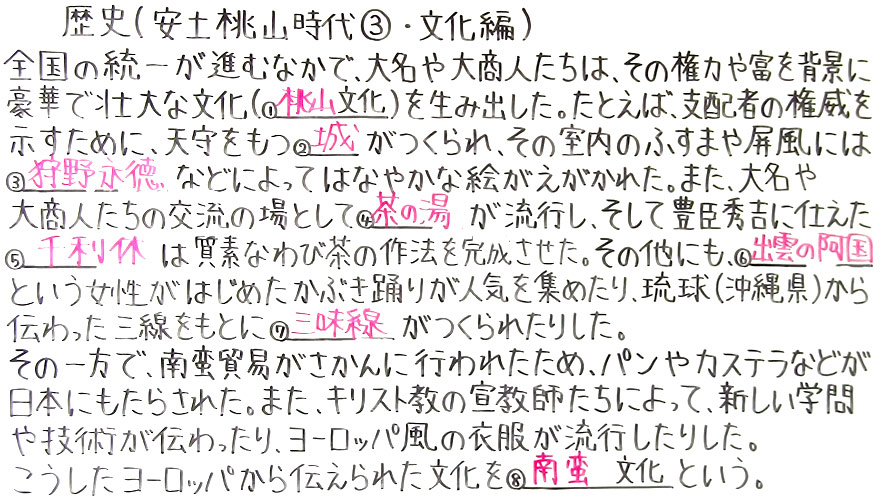 歴史(安土桃山時代③・文化編)
全国の統一が進むなかで、大名や大商人たちは、その権力や富を背景に
豪華で壮大な文化(①桃山文化)を生み出した。たとえば、支配者の権威を
示すために、天守をもつ②城がつくられ、その室内のふすまや屏風には
③狩野永徳などによってはなやかな絵がえがかれた。また、大名や
大商人たちの交流の場として④茶の湯が流行し、そして豊臣秀吉に仕えた
⑤千利休は質素なわび茶の作法を完成させた。その他にも、⑥出雲の阿国
という女性がはじめたかぶき踊りが人気を集めたり、琉球(沖縄県)から
伝わった三線をもとに⑦三味線がつくられたりした。
その一方で、南蛮貿易がさかんに行われたため、パンやカステラなどが
日本にもたらされた。また、キリスト教の宣教師たちによって、新しい学問
や技術が伝わったり、ヨーロッパ風の衣服が流行したりした。
こうしたヨーロッパから伝えられた文化を⑧南蛮文化という。